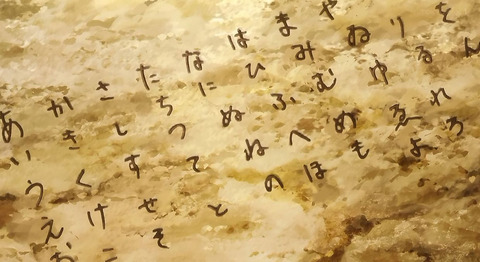 あいうえお
かきくけこ
さしすせそ
たちつてと
なにぬねの
はひふへほ
まみむめも
やゐゆゑよ
りるれろ
をん